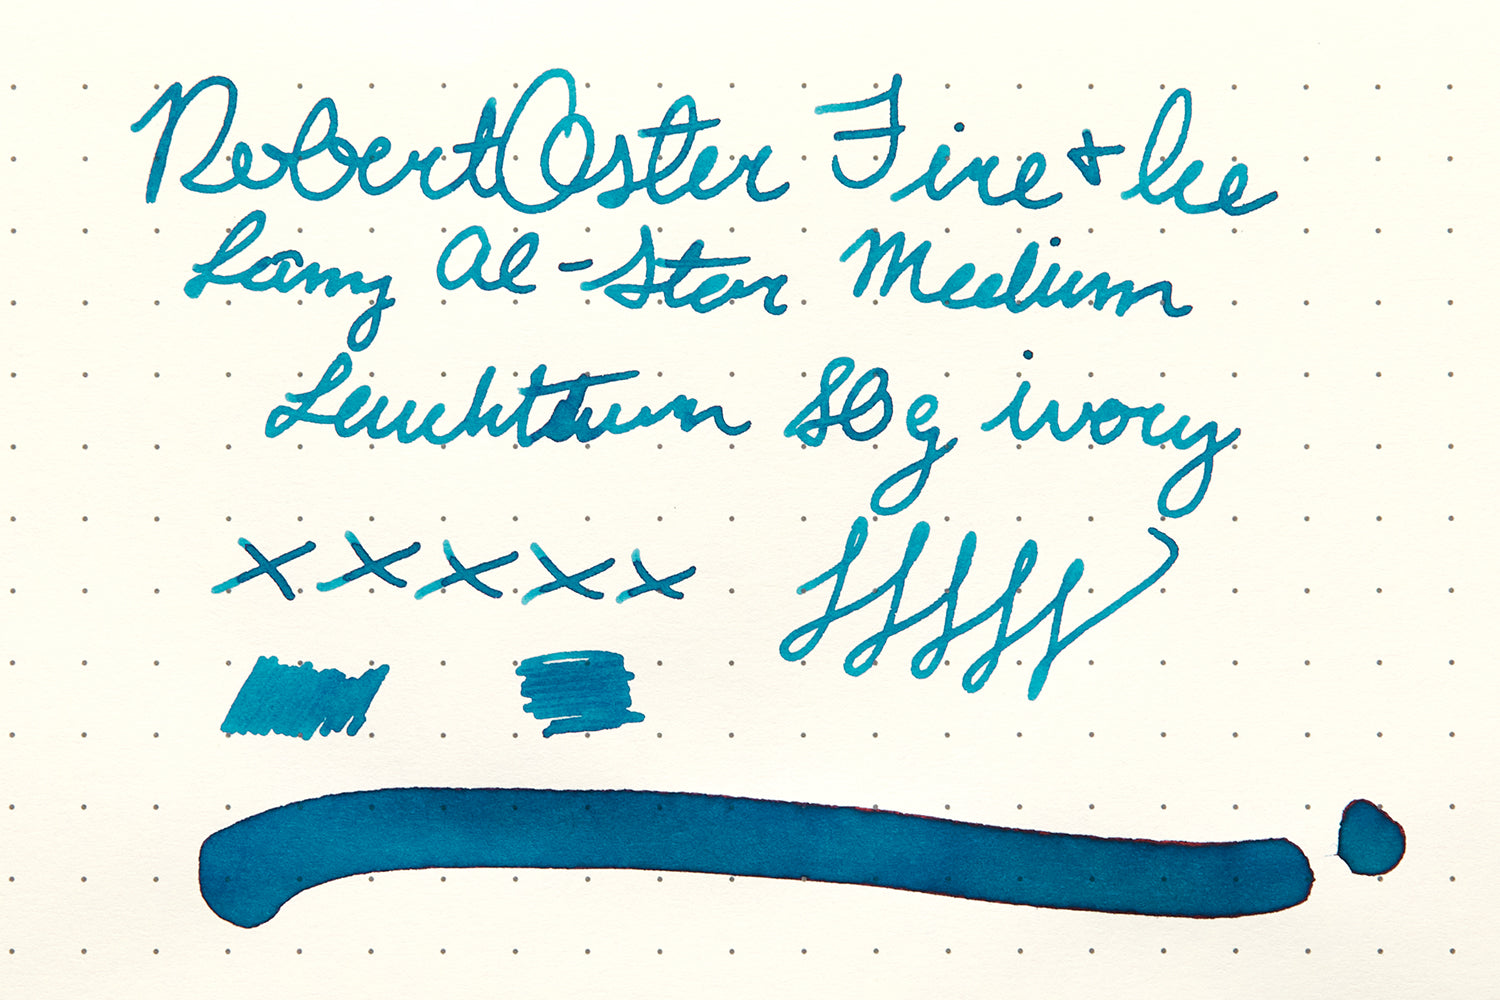 Robert Oster Fire & Ice
Lamy Al-Star Medium
Leuchtturm 80g ivory
xxxxx